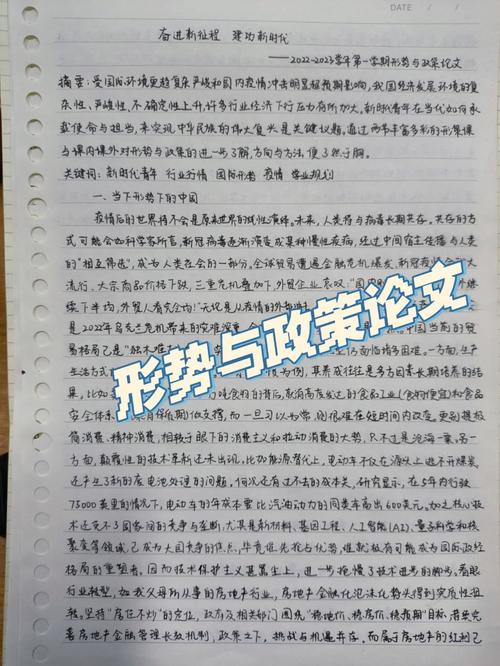 DATE
奋进新征程 建功新时代
——2022-2023学年第一学期形势与政策论文
摘要：受国际环境更趋复杂严峻和国内疫情冲击明显超预期影响，我国经济发展环境的复
杂性、严峻性、不确定性上升，许多行业经济下行压力有所加大。新时代青年在当代如何承
载使命与担当，来实现中华民族的伟大复兴是关键议题。通过两节丰富多彩的形策课
与课内课外对形势与政策的进一步了解，方向与方法，便了然于胸。
关键词：新时代青年 行业行情 国际形势 疫情 学业规划
一、当下形势下的中国
疫情后的世界将不会是原来世界的线性演绎。未来，人类将与病毒长期共存。共存的方
式可能会如科学家所言，新冠病毒逐渐演变成某种慢性疾病，经过中间宿主传播与人类
的"相互筛选"，成为人类社会的一部分。全球贸易遭遇金融危机爆发、新冠疫
流行、大宗商品价格下跌，三重危机叠加下，外贸企业哀叹："国
续下半年，外贸人有完全内！"无论是从疫情的外部
是2022年乌克兰危机带来的灾难深重，
中国当前的贸
易格局已是"独木难
方面错多困难。一方面，生产
生活方式
为例，其养成往往是多方因素长期培养的结
果，比如
吃食物的背后，
食品工业（食物便宜）和食品
安全体系
有保质期）做支撑，而一旦习以为常，则很难在短时间内改变，更别提极
简消费、精神消费，相较于眼下的消费主义和拉动消费的大势，只不过是沧海一粟。另一
方面，颠覆性的技术革新还未出现，比如能源替代上，电动车不仅在源头上逃不开煤炭，
还产生了新的废电池处理的问题。何况还有过不去的成本关，研究显示，在5年内行驶
75000英里的情况下，电动车的年成本要比汽油动力的同类车高出600美元。加之核心技
术还受不了国家间的竞争与垄断，尤其是新材料、基因工程、人工智能（AI）、量子科学和核
聚变等领域，已成为大国竞争的焦点，毕竟谁先抢占优势，谁就极有可能成为国际政经
格局的重塑者。因而技术保护主义甚嚣尘上，进一步拖慢了技术进步的脚步。着眼
行业转型，如我父母所从事的房地产行业，房地产金融化泡沫化势头得到实质性扭
转。坚持"房住不炒"的定位，政府及相关部门围绕"稳地价、稳房价、稳预期"目标，落实完
善房地产金融管理长效机制，政策之下，挑战与机遇并存。而属于房地产的红利已
形势与政策论文